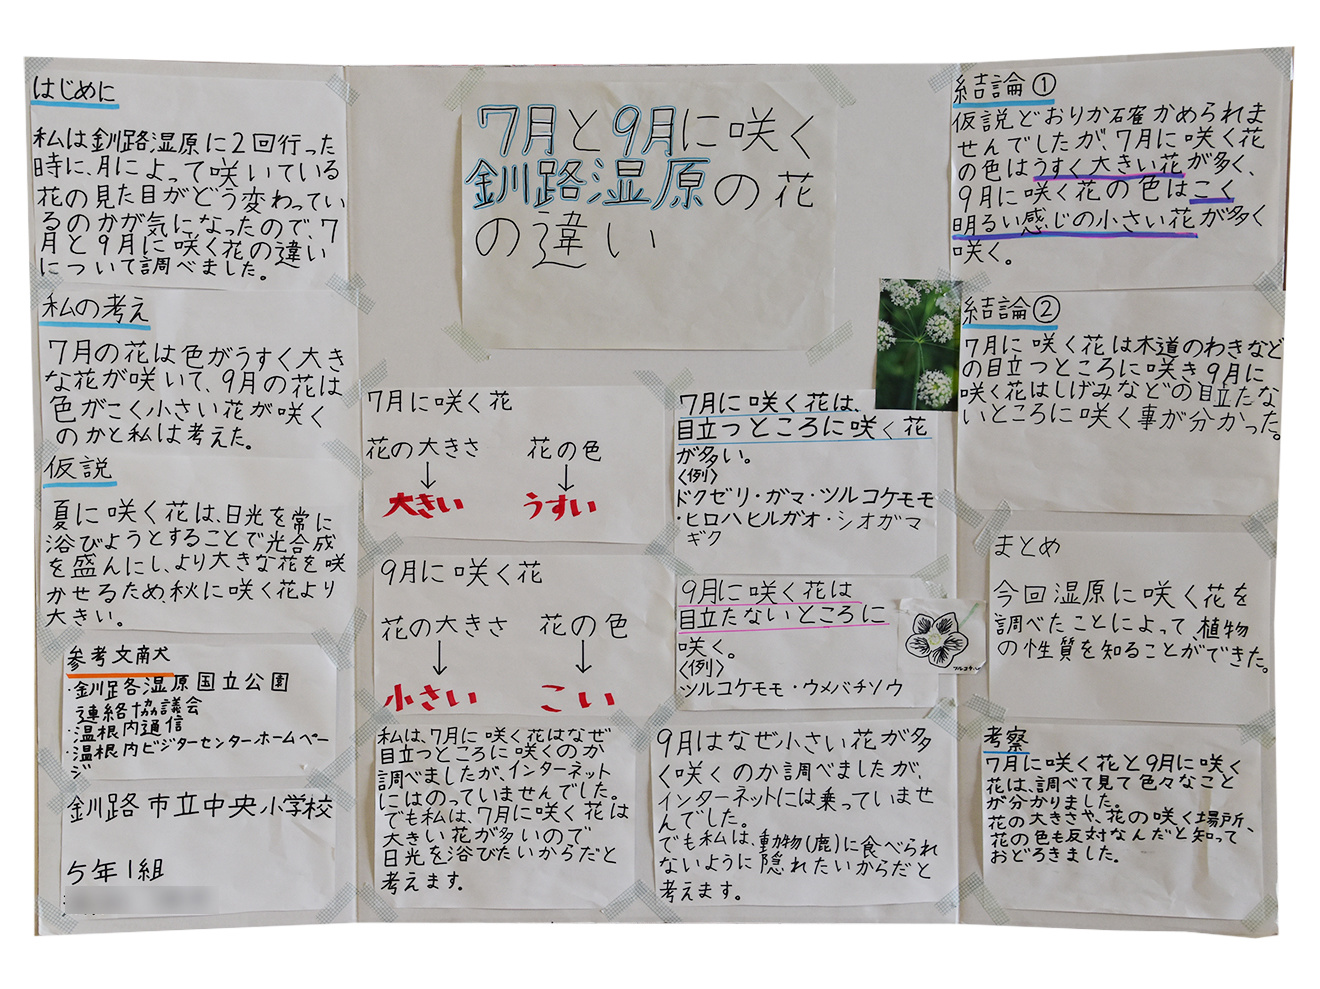 はじめに
私は釧路湿原に2回行った
時に、月によって咲いている
花の見た目がどう変わってい
るのかが気になったので、7
月と9月に咲く花の違い
について調べました。
私の考え
7月の花は色がうすく大き
な花が咲いて、9月の花は
色がこく小さい花が咲く
のかと私は考えた。
仮説
夏に咲く花は、日光を常に
浴びようとすることで光合成
を盛んにし、より大きな花を咲
かせるため、秋に咲く花より
大きい。
参考文献
・釧路湿原国立公園
連絡協議会
・温根内通信
・温根内ビジターセンターホームペー
ジ
釧路市立中央小学校
5年1組
7月と9月に咲く
釧路湿原の花
の違い
7月に咲く花
花の大きさ 花の色
↓ ↓
大きい うすい
9月に咲く花
花の大きさ 花の色
↓ ↓
小さい こい
私は、7月に咲く花はなぜ
目立つところに咲くのか
調べましたが、インターネット
にはのっていませんでした。
でも私は、7月に咲く花は
大きい花が多いので
日光を浴びたいからだと
考えます。
7月に咲く花は、
目立つところに咲く花
が多い。
〈例〉
ドクゼリ・ガマ・ツルコケモモ
・ヒロハヒルガオ・シオガマ
ギク
9月に咲く花は
目立たないところに
咲く。
〈例〉
ツルコケモモ・ウメバチソウ
9月はなぜ小さい花が多
く咲くのか調べましたが、
インターネットには乗っていませ
んでした。
でも私は、動物(鹿)に食べられ
ないように隠れたいからだと
考えます。
結論①
仮説どおりか確かめられま
せんでしたが、7月に咲く花
の色はうすく大きい花が多く、
9月に咲く花の色はこく
明るい感じの小さい花が多く
咲く。
結論②
7月に咲く花は木道のわきなど
の目立つところに咲き9月に
咲く花はしげみなどの目立たな
いところに咲く事が分かった。
まとめ
今回湿原に咲く花を
調べたことによって、植物
の性質を知ることができた。
考察
7月に咲く花と9月に咲く
花は、調べて見て色々なこと
が分かりました。
花の大きさや、花の咲く場所、
花の色も反対なんだと知って
おどろきました。